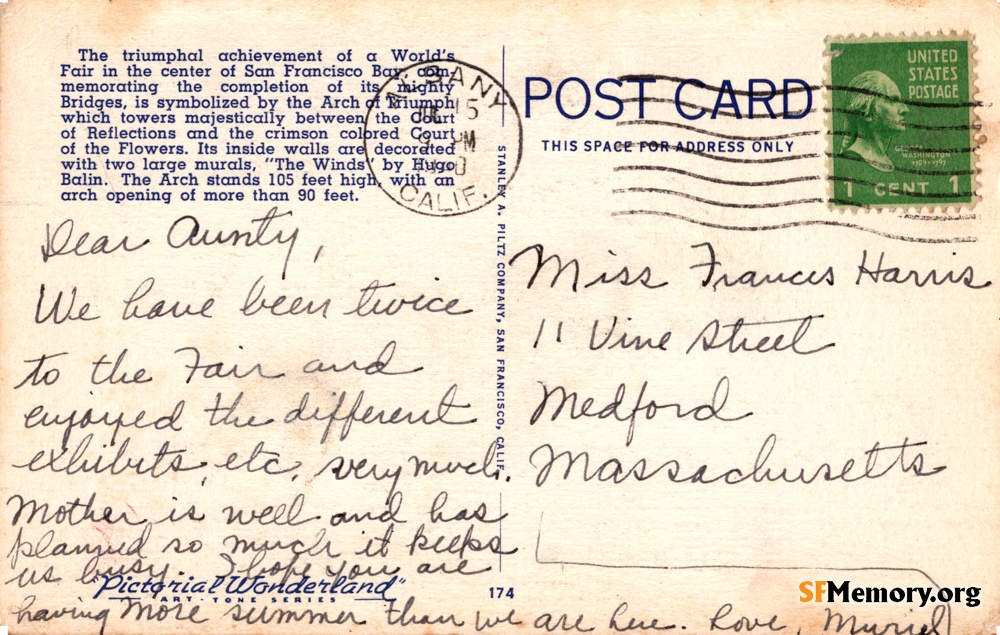 The triumphal achievement of a World's
Fair in the center of San Francisco Bay, com-
memorating the completion of its mighty
Bridges, is symbolized by the Arch of Triumph
which towers majestically between the Court
of Reflections and the crimson colored Court
of the Flowers. Its inside walls are decorated
with two large murals, "The Winds" by Hugo
Balin. The Arch stands 105 feet high, with an
arch opening of more than 90 feet.
ALBANY
15
PM
CALIF.
POST CARD
THIS SPACE FOR ADDRESS ONLY
UNITED
STATES
POSTAGE
WASHINGTON
1789-1797
1 CENT 1
Dear Aunty,
We have been twice
to the Fair and
enjoyed the different
exhibits, etc, very much.
Mother is well and has
planned so much it keeps
us busy. I hope you are
having more summer than we are here. Love, Muriel
STANLEY A. PILTZ COMPANY, SAN FRANCISCO, CALIF.
Miss Frances Harris
11 Vine Street
Medford
Massachusetts
"Pictorial Wonderland"
ART-TONE SERIES
174
SFMemory.org